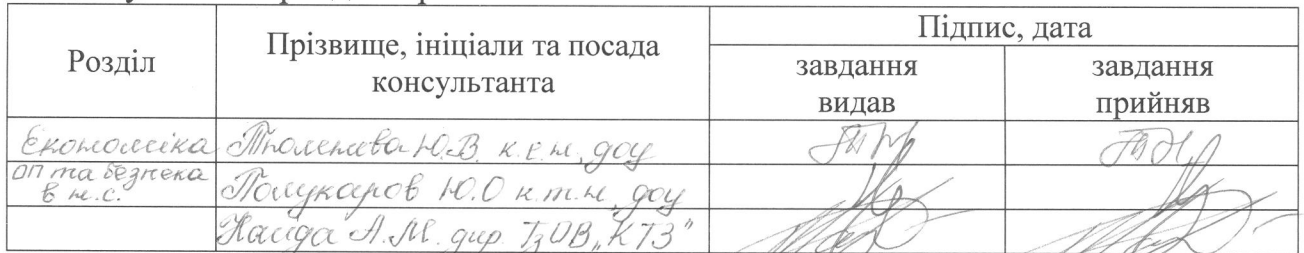 Розділ
Прізвище, ініціали та посада
консультанта
Підпис, дата
завдання
видав
завдання
прийняв
Економіка Тюленєва Ю.В. к.е.н, доц
ОП та безпека
в н.с.
Полукаров Ю.О к.т.н, доц
А.М. дир. ТзОВ „КТЗ"